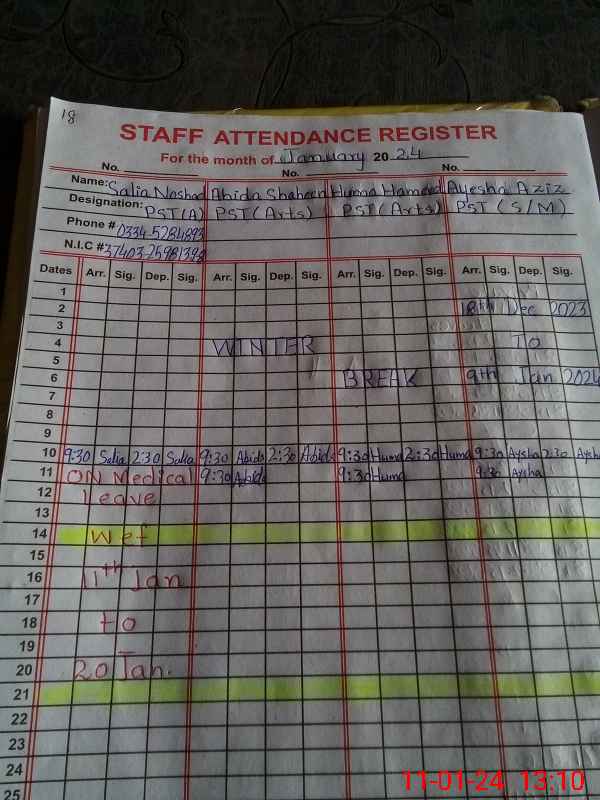 18
STAFF ATTENDANCE REGISTER
For the month of January 2024
No. No. No.
Name: Salia Noshad Abida Shaheen Huma Hameed Ayesha Aziz
Designation: PST(A) PST(Arts) PST(Arts) PST (S/M)
Phone # 0334-5284893
N.I.C #
Dates Arr. Sig. Dep. Sig. Arr. Sig. Dep. Sig. Arr. Sig. Dep. Sig. Arr. Sig. Dep. Sig.
1
2 18th Dec 2023
3
4 WINTER To
5
6 BREAK 9th Jan 2024
7
8
9
10 9:30 Salia 2:30 Salia 9:30 Abida 2:30 Abida 9:30 Huma 2:30 Huma 9:30 Aysha 2:30 Aysha
11 ON Medical 9:30 Abida 9:30 Huma 9:30 Aysha
12 Leave
13
14 wef
15
16 11th Jan
17
18 to
19
20 20 Jan.
21
22
23
24
25
11-01-24 13:10